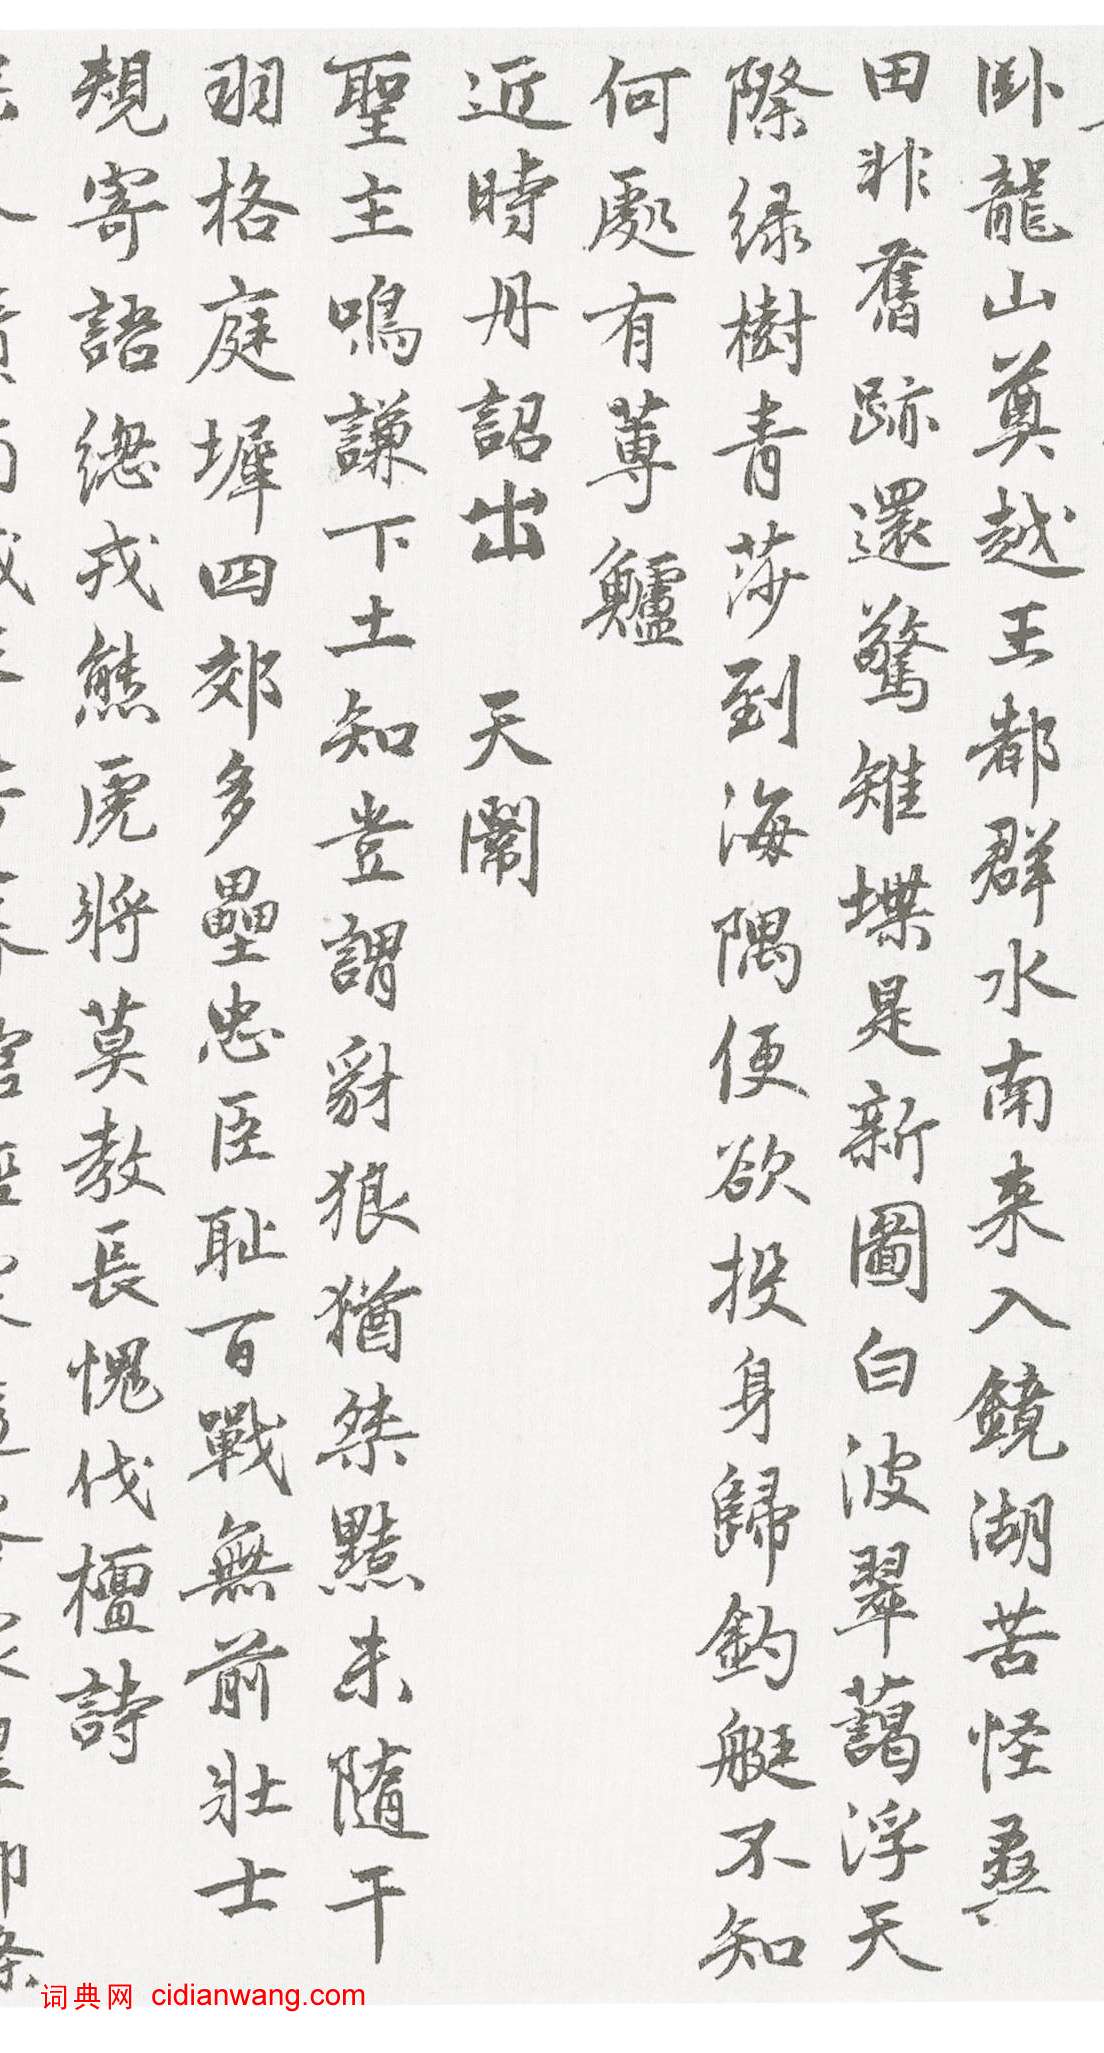 卧龍山奠越王都群水南来入鏡湖苦怪
田非舊跡還驚雉堞是新圖白波翠藹浮天
際緑樹青莎到海隅便欲投身歸釣艇不知
何處有蓴鱸
近時丹詔出 天閽
聖主鳴謙下士知豈謂豺狼猶桀黠未隨干
羽格庭墀四郊多壘忠臣耻百戰無前壯士
規寄語總戎熊虎將莫教長愧伐檀詩
词典网 cidianwang.com